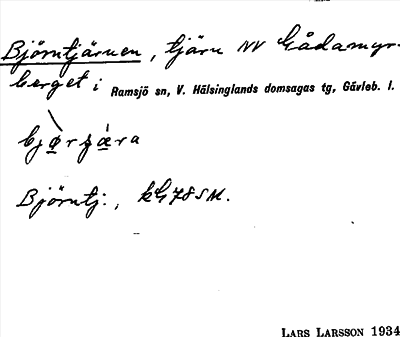 Björntjärnen, tjärn NV Gådamyr-
berget i Ramsjö sn, V. Hälsinglands domsagas tg, Gävleb. l.
Björntj., kG 78 SM.
LARS LARSSON 1934